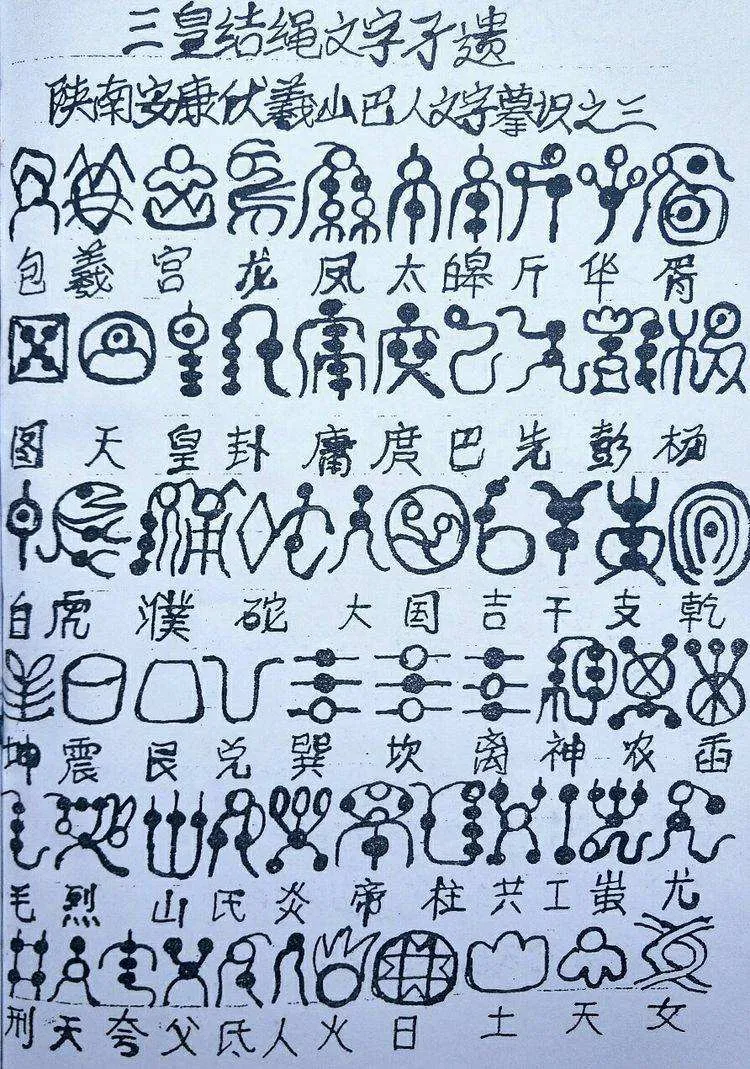 三皇结绳文字孑遗
陕南安康伏羲山巴人文字摹识之三
包 羲 宫 龙 凤 太 皞 斤 华 胥
图 天 皇 卦 庸 度 巴 先 彭 杨
自 虎 濮 砣 大 国 吉 干 支 乾
坤 震 艮 兑 巽 坎 离 神 农
毛 烈 山 氏 炎 帝 柱 共 工 蚩 尤
刑 天 夸 父 氏 人 火 日 土 天 女